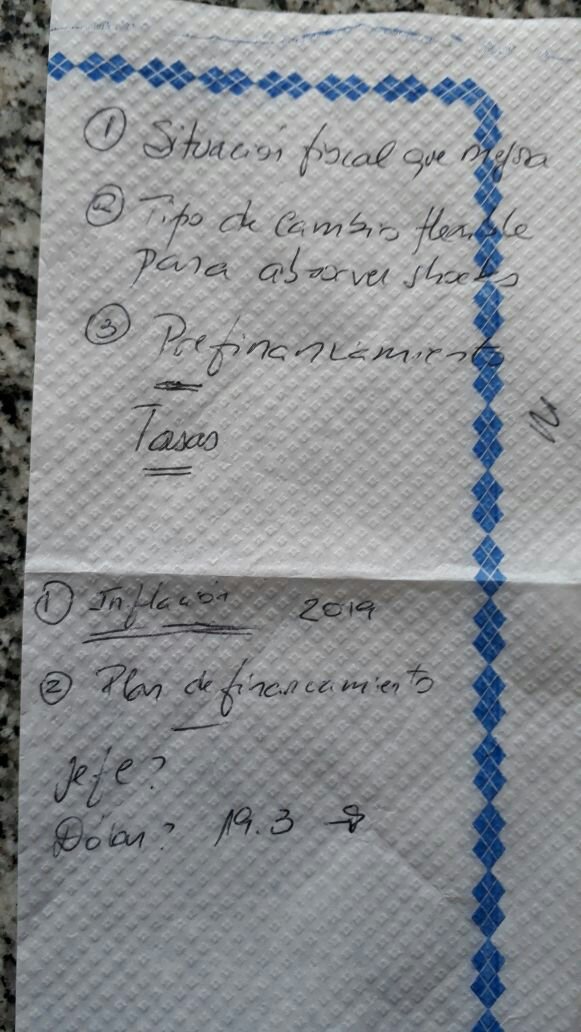 ① Situación fiscal que mejora
② Tipo de cambio flexible
para absorver shocks
③ Prefinanciamiento
Tasas
① Inflación 2019
② Plan de financiamiento
Jefe?
Dólar? 19.3